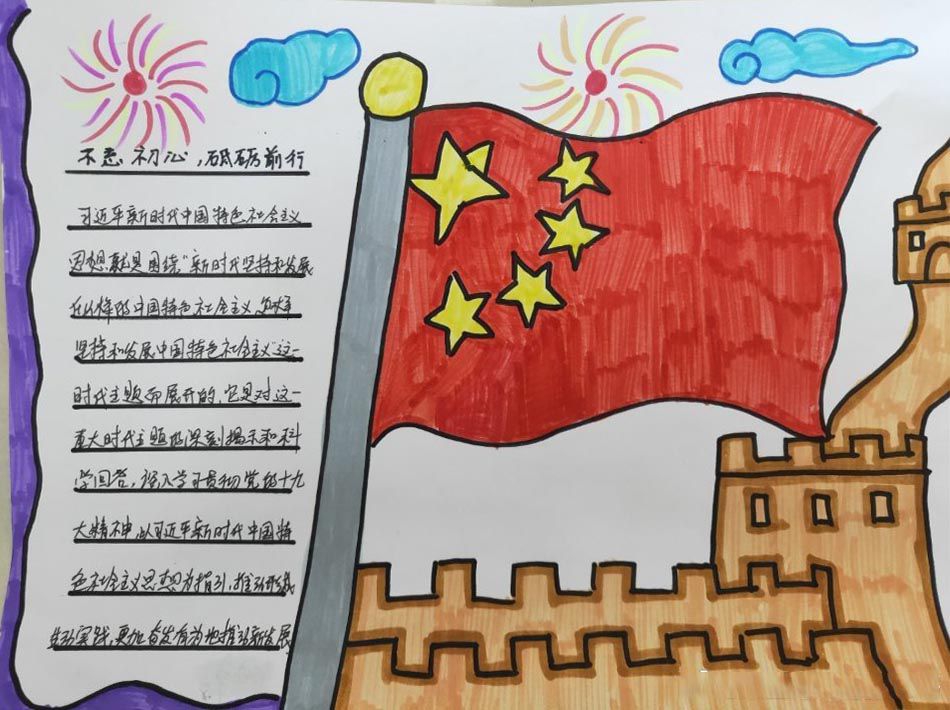 不忘初心，砥砺前行
习近平新时代中国特色社会主义
思想就是围绕“新时代坚持和发展
什么样的中国特色社会主义，怎样
坚持和发展中国特色社会主义”这一
时代主题而展开的，它是对这一
重大时代主题的深刻揭示和科
学回答，深入学习贯彻党的十九
大精神，以习近平新时代中国特
色社会主义思想为指引，推动形成
生动实践，更加奋发有为地推动新发展